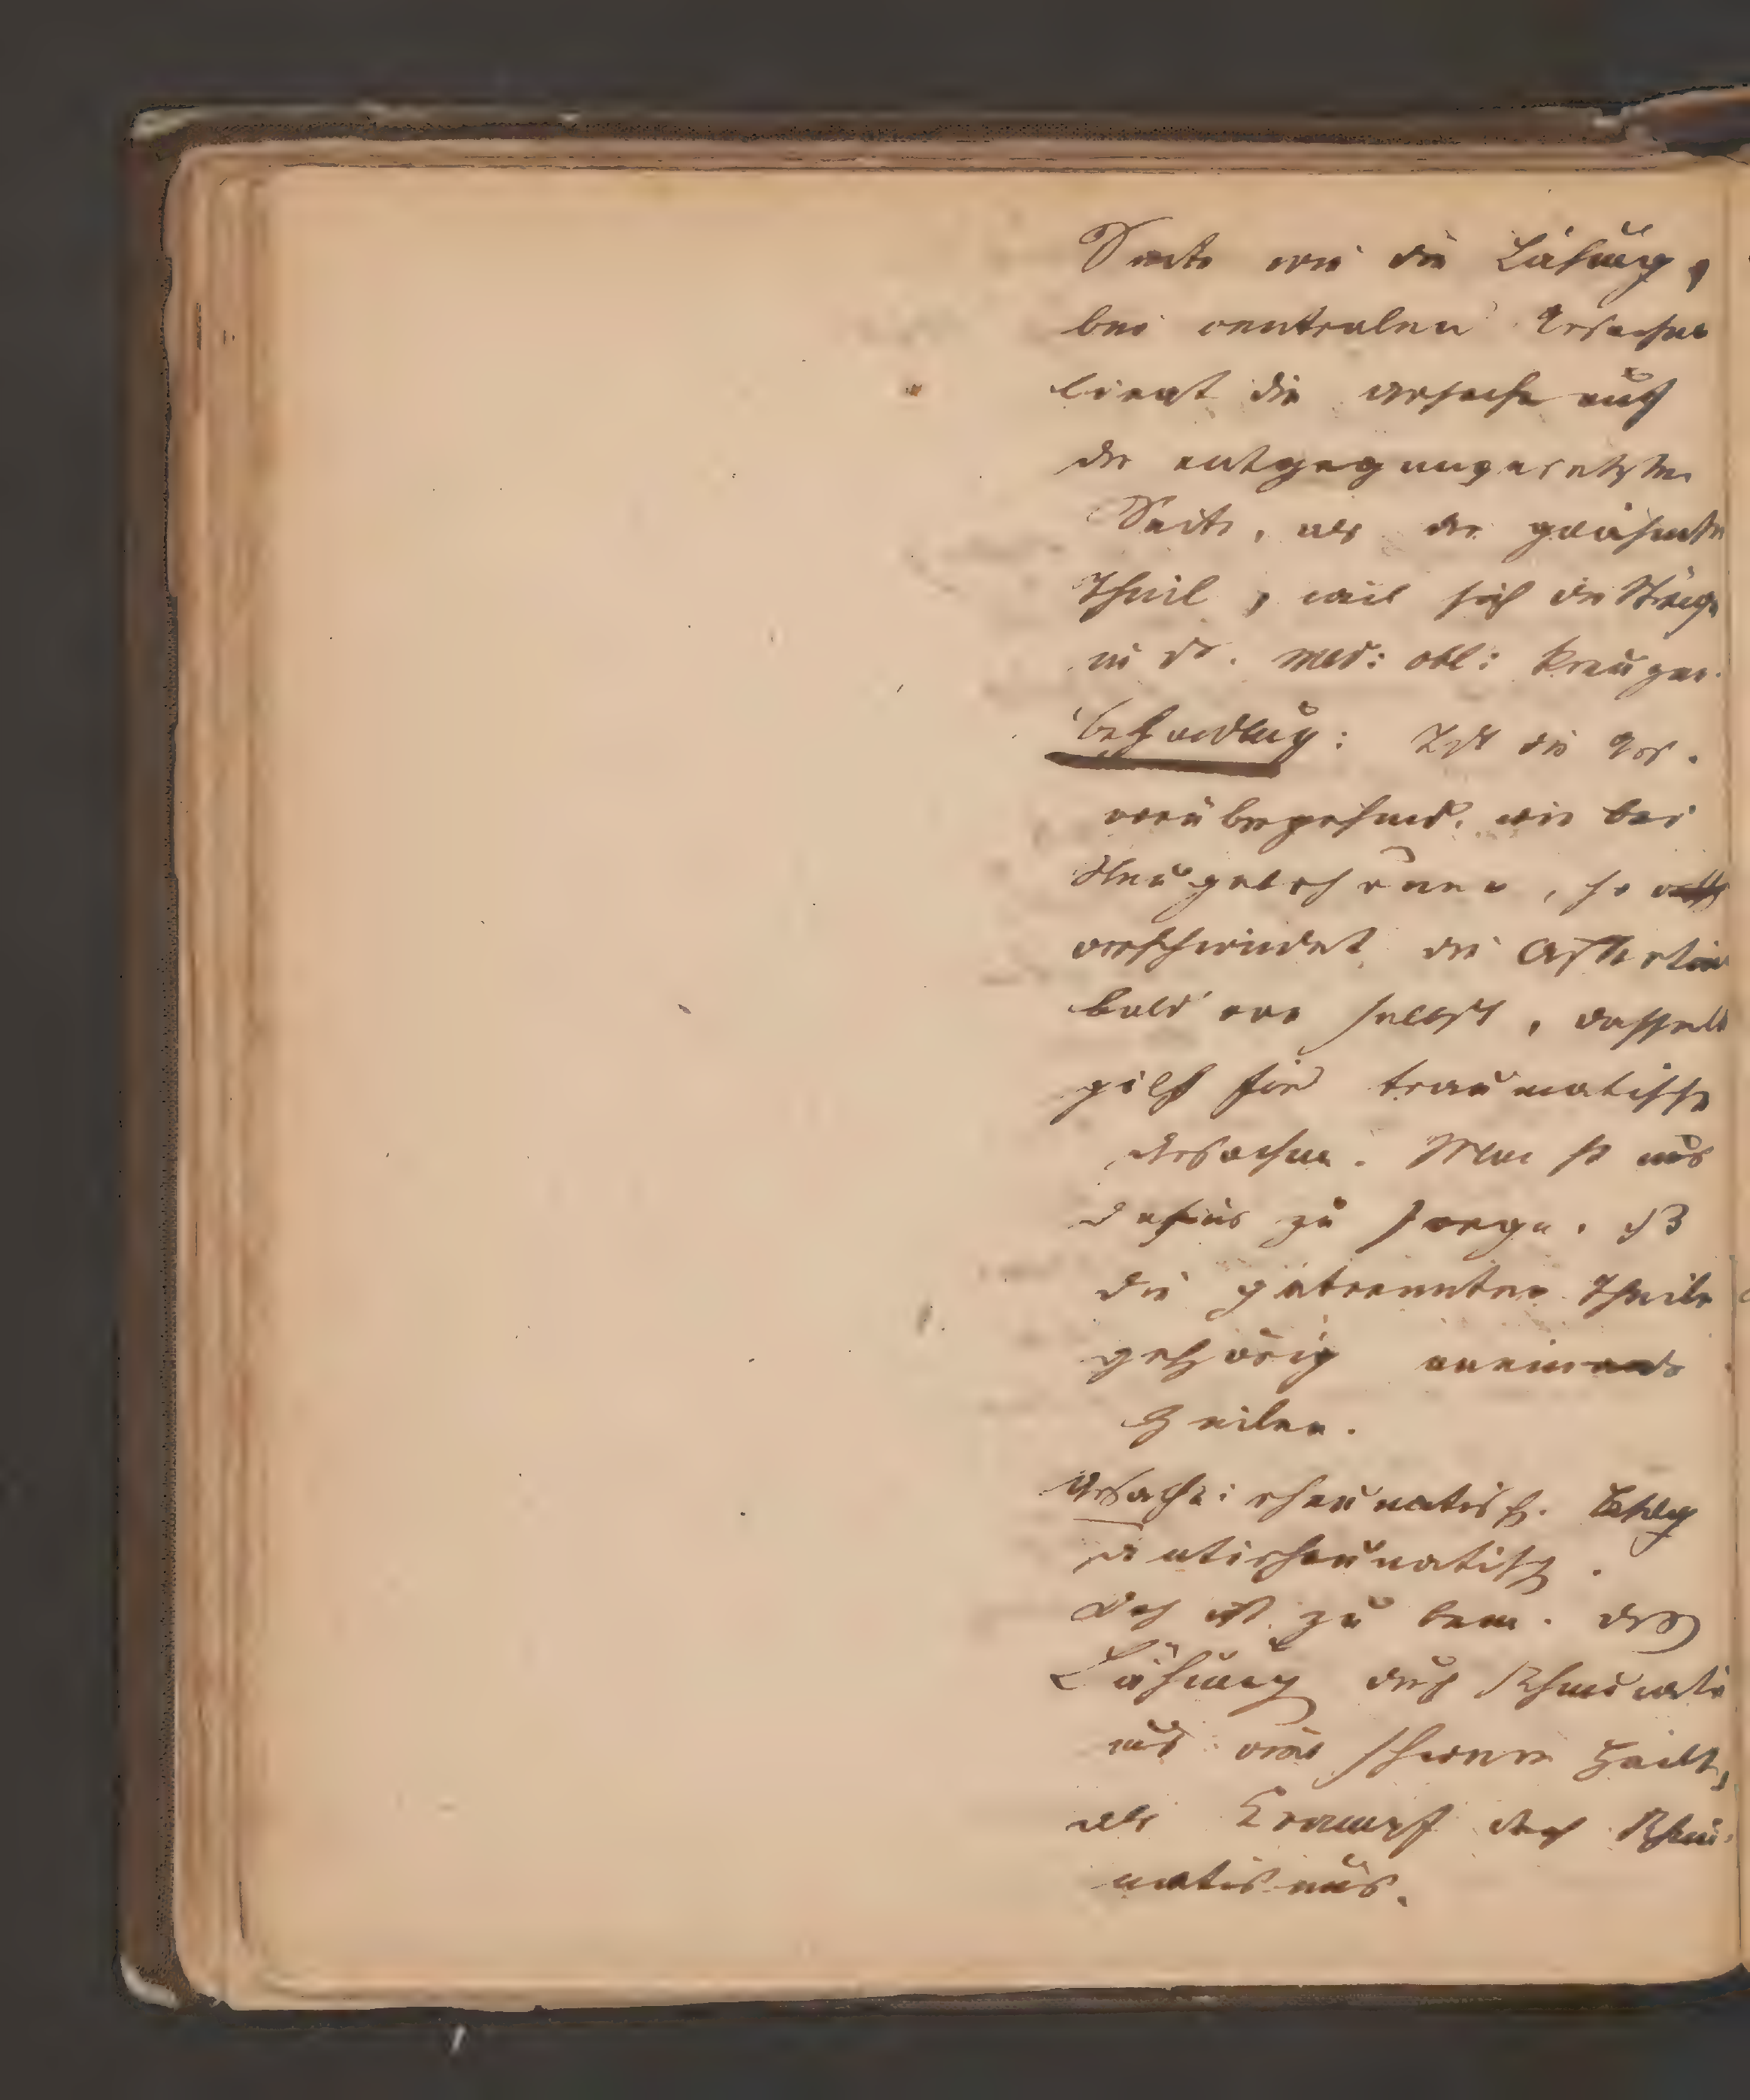 Seite wie die Lähmung,
bei centralen Ursachen
liegt die Ursache auf
der entgegengesetzten
Seite, als der gelähmte
Theil, weil sich die Stränge
in dr. med: obl: kreuzen.
Behandlung: Ist die Urs.
vorübergehend, wie bei
Neugeborenen, so
verschwindet die Affection
bald von selbst, dasselbe
gilt für traumatische
Ursachen. Man hat nur
dafür zu sorgen, dß
die getrennten Theile
gehörig aneinander
heilen.
Ursache: rheumatisch. Behdlg
antirheumatisch.
Doch ist zu bem. dass
Lähmung durch Rheumatis
mus viel schwerer heilt,
als Krampf durch Rheu-
matismus.